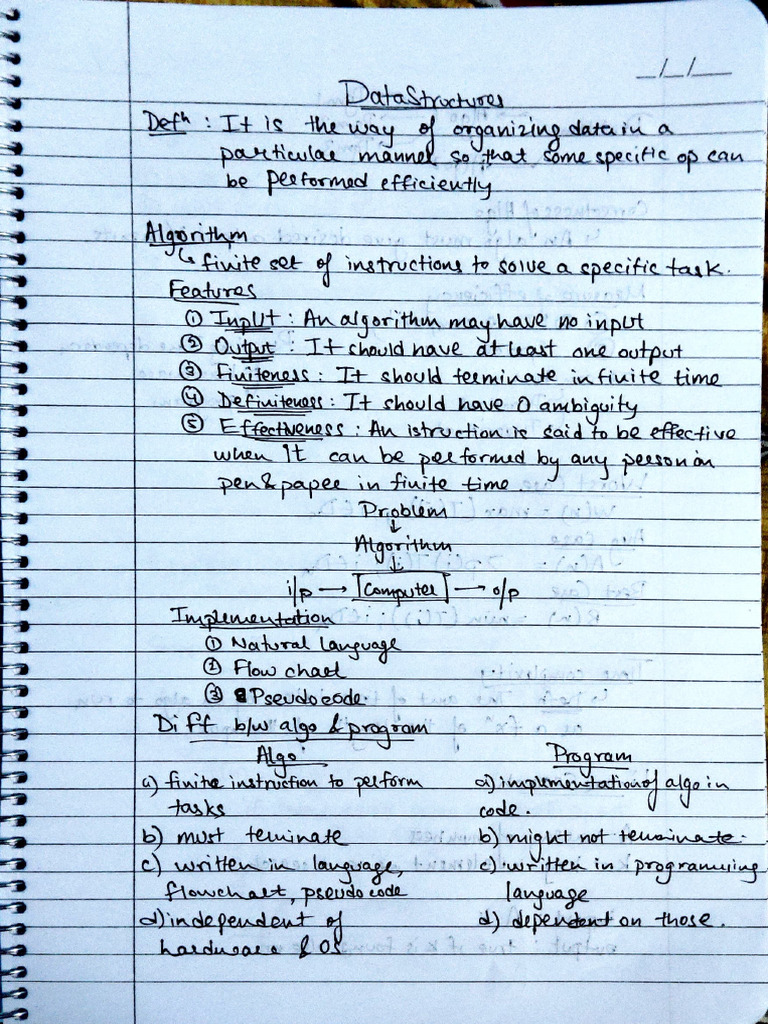 _/_/__
DataStructures
Defⁿ : It is the way of organizing data in a
particular manner so that some specific op can
be performed efficiently
Algorithm
↳ finite set of instructions to solve a specific task.
Features
① Input : An algorithm may have no input
② Output : It should have at least one output
③ Finiteness : It should terminate in finite time
④ Definiteness : It should have 0 ambiguity
⑤ Effectiveness : An istruction is said to be effective
when It can be performed by any person on
pen & paper in finite time
Problem
↓
Algorithm
↓
i/p → Computer → o/p
Implementation
① Natural language
② Flow chart
③ Pseudocode
Diff b/w algo & program
Algo
Program
a) finite instruction to perform
tasks
a) implementation of algo in
code.
b) must teminate
b) might not terminate.
c) written in language,
flowchart, pseudocode
c) written in programming
language
d) independent of
hardware & OS
d) dependent on those.